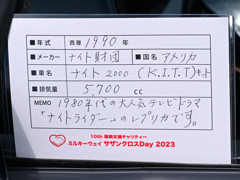 ■年式 西暦 1990年
■メーカー ナイト財団 ■国名 アメリカ
■車名 ナイト2000 (K.I.T.T)セット
■排気量 5,700 cc
MEMO 1980年代の大人気テレビドラマ
「ナイトライダー」のレプリカです。
10th 復興支援チャリティー
ミルキーウェイ サザンクロスDay 2023